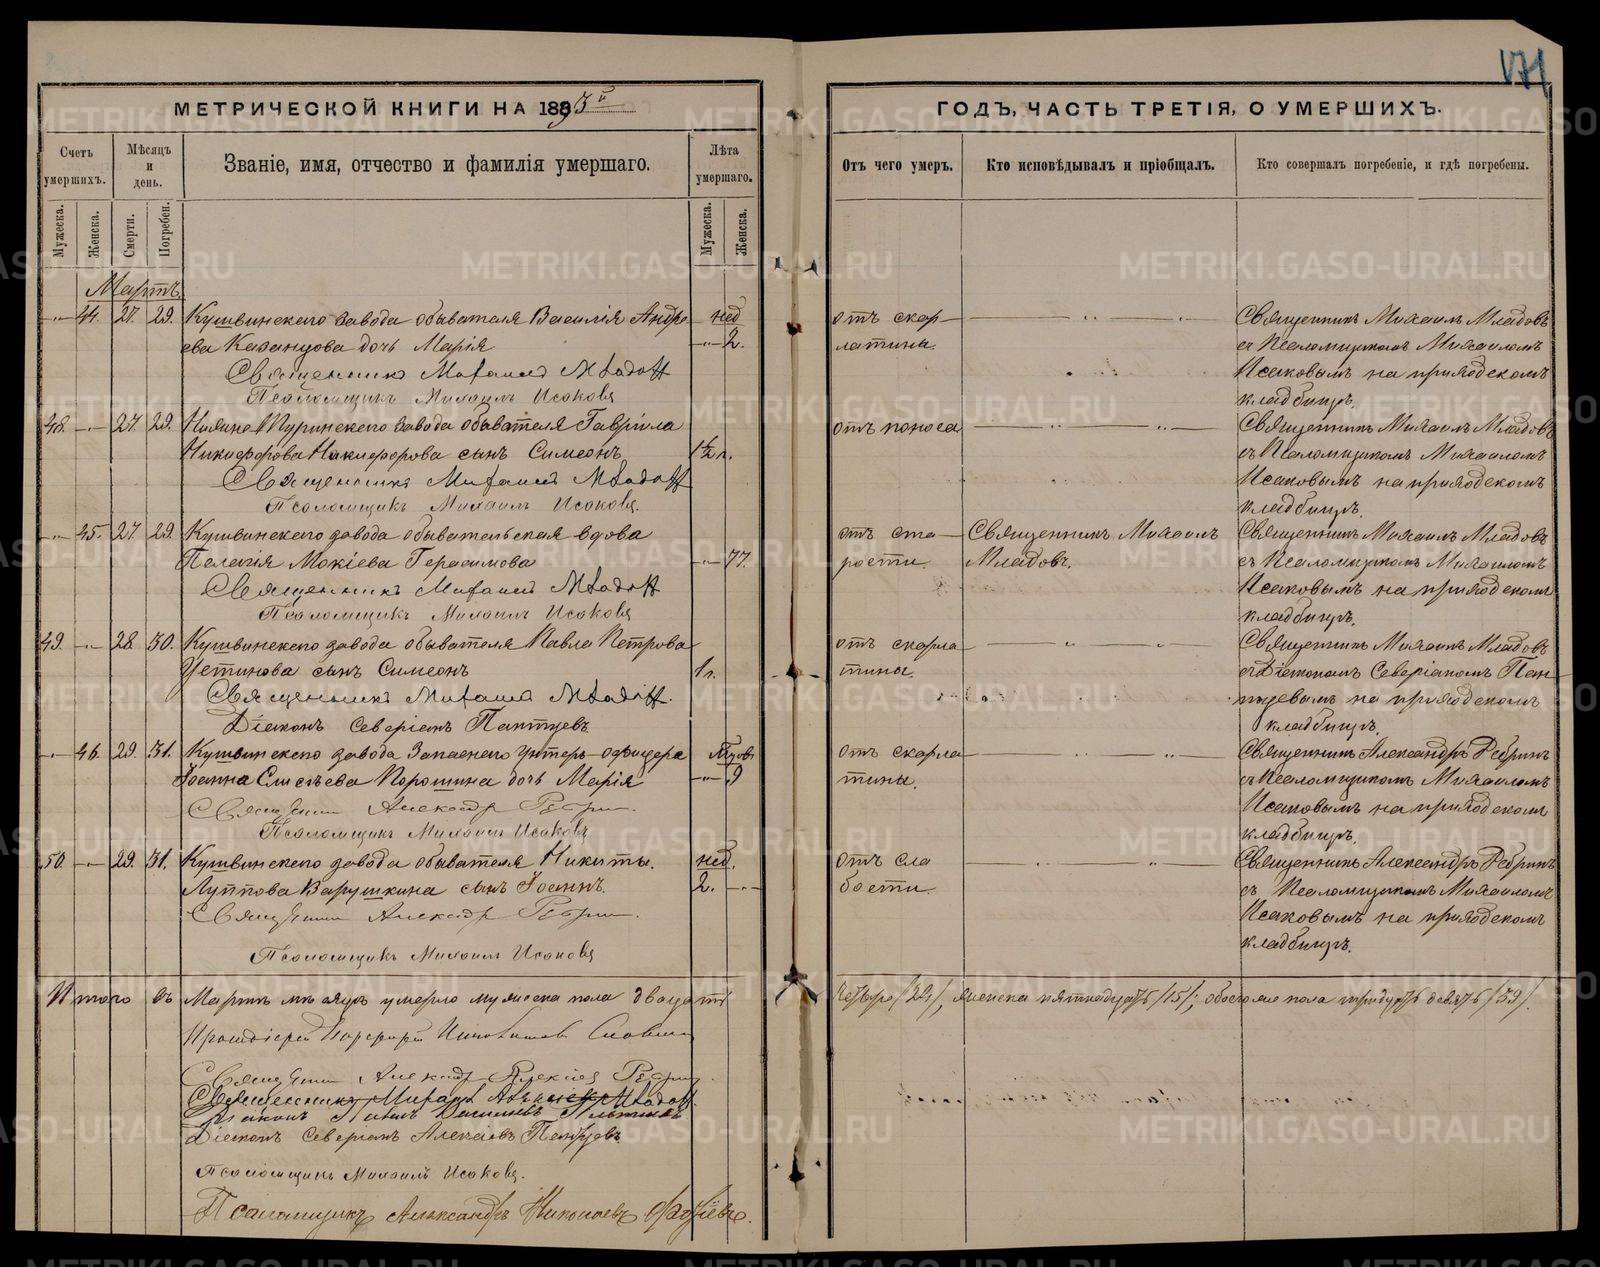 171
МЕТРИЧЕСКОЙ КНИГИ НА 1893й
ГОДЪ, ЧАСТЬ ТРЕТІЯ, О УМЕРШИХЪ.
Счетъ умершихъ.
Мѣсяцъ и день.
Званіе, имя, отчество и фамилія умершаго.
Лѣта умершаго.
Отъ чего умеръ.
Кто исповѣдывалъ и пріобщалъ.
Кто совершалъ погребеніе, и гдѣ погребены.
Мужеска.
Женска.
Смерти.
Погребен.
Мужеска.
Женска.
Мартъ
-"- 44. 27. 29. Кушвинскаго завода обывателя Василія Андре нед
ева Казанцова дочь Марія -"- 2.
Священникъ Михаилъ Младовъ
Псаломщикъ Михаилъ Исаковъ
отъ скар
латины.
Священникъ Михаилъ Младовъ
съ Псаломщикомъ Михаиломъ
Исаковымъ на приходскомъ
кладбищѣ.
48. -"- 27. 29. Нижне Туринскаго завода обывателя Гавріила
Никифорова Никифорова сынъ Симеонъ 1½ г.
Священникъ Михаилъ Младовъ
Псаломщикъ Михаилъ Исаковъ
отъ поноса
Священникъ Михаилъ Младовъ
съ Псаломщикомъ Михаиломъ
Исаковымъ на приходскомъ
кладбищѣ.
-"- 45. 27. 29. Кушвинскаго завода обывательская вдова
Пелагія Мокіева Герасимова -"- 77.
Священникъ Михаилъ Младовъ
Псаломщикъ Михаилъ Исаковъ
отъ ста
рости
Священникъ Михаилъ
Младовъ.
Священникъ Михаилъ Младовъ
съ Псаломщикомъ Михаиломъ
Исаковымъ на приходскомъ
кладбищѣ.
49. -"- 28. 30. Кушвинскаго завода обывателя Павла Петрова
Устинова сынъ Симеонъ 1 г.
Священникъ Михаилъ Младовъ.
Діаконъ Северіанъ Пантуевъ
отъ скарла
тины.
Священникъ Михаилъ Младовъ
съ Діакономъ Северіаномъ Пан
туевымъ на приходскомъ
кладбищѣ.
-"- 46. 29. 31. Кушвинскаго завода Запаснаго унтеръ-офицера
Іоанна Елисѣева Порошина дочь Марія -"- 9
Священникъ Александръ
Псаломщикъ Михаилъ Исаковъ
отъ скарла
тины.
Священникъ Александръ
съ Псаломщикомъ Михаиломъ
Исаковымъ на приходскомъ
кладбищѣ.
50. -"- 29. 31. Кушвинскаго завода обывателя Никиты нед.
Луппова Варушкина сынъ Іоаннъ. 2. -"-
Священникъ Александръ
Псаломщикъ Михаилъ Исаковъ
отъ сла
бости
Священникъ Александръ
съ Псаломщикомъ Михаиломъ
Исаковымъ на приходскомъ
кладбищѣ.
Итого въ Мартѣ мѣсяцѣ умерло мужеска пола двадцать четыре /24/, женска пятнадцать /15/; обоего пола тридцать девять /39/.
Протоіерей
Священникъ Александръ Алексѣевъ
Священникъ Михаилъ Младовъ
Діаконъ
Діаконъ Северіанъ Алексѣевъ Пантуевъ.
Псаломщикъ Михаилъ Исаковъ.
Псаломщикъ Александръ Николаевъ
METRIKI.GASO-URAL.RU